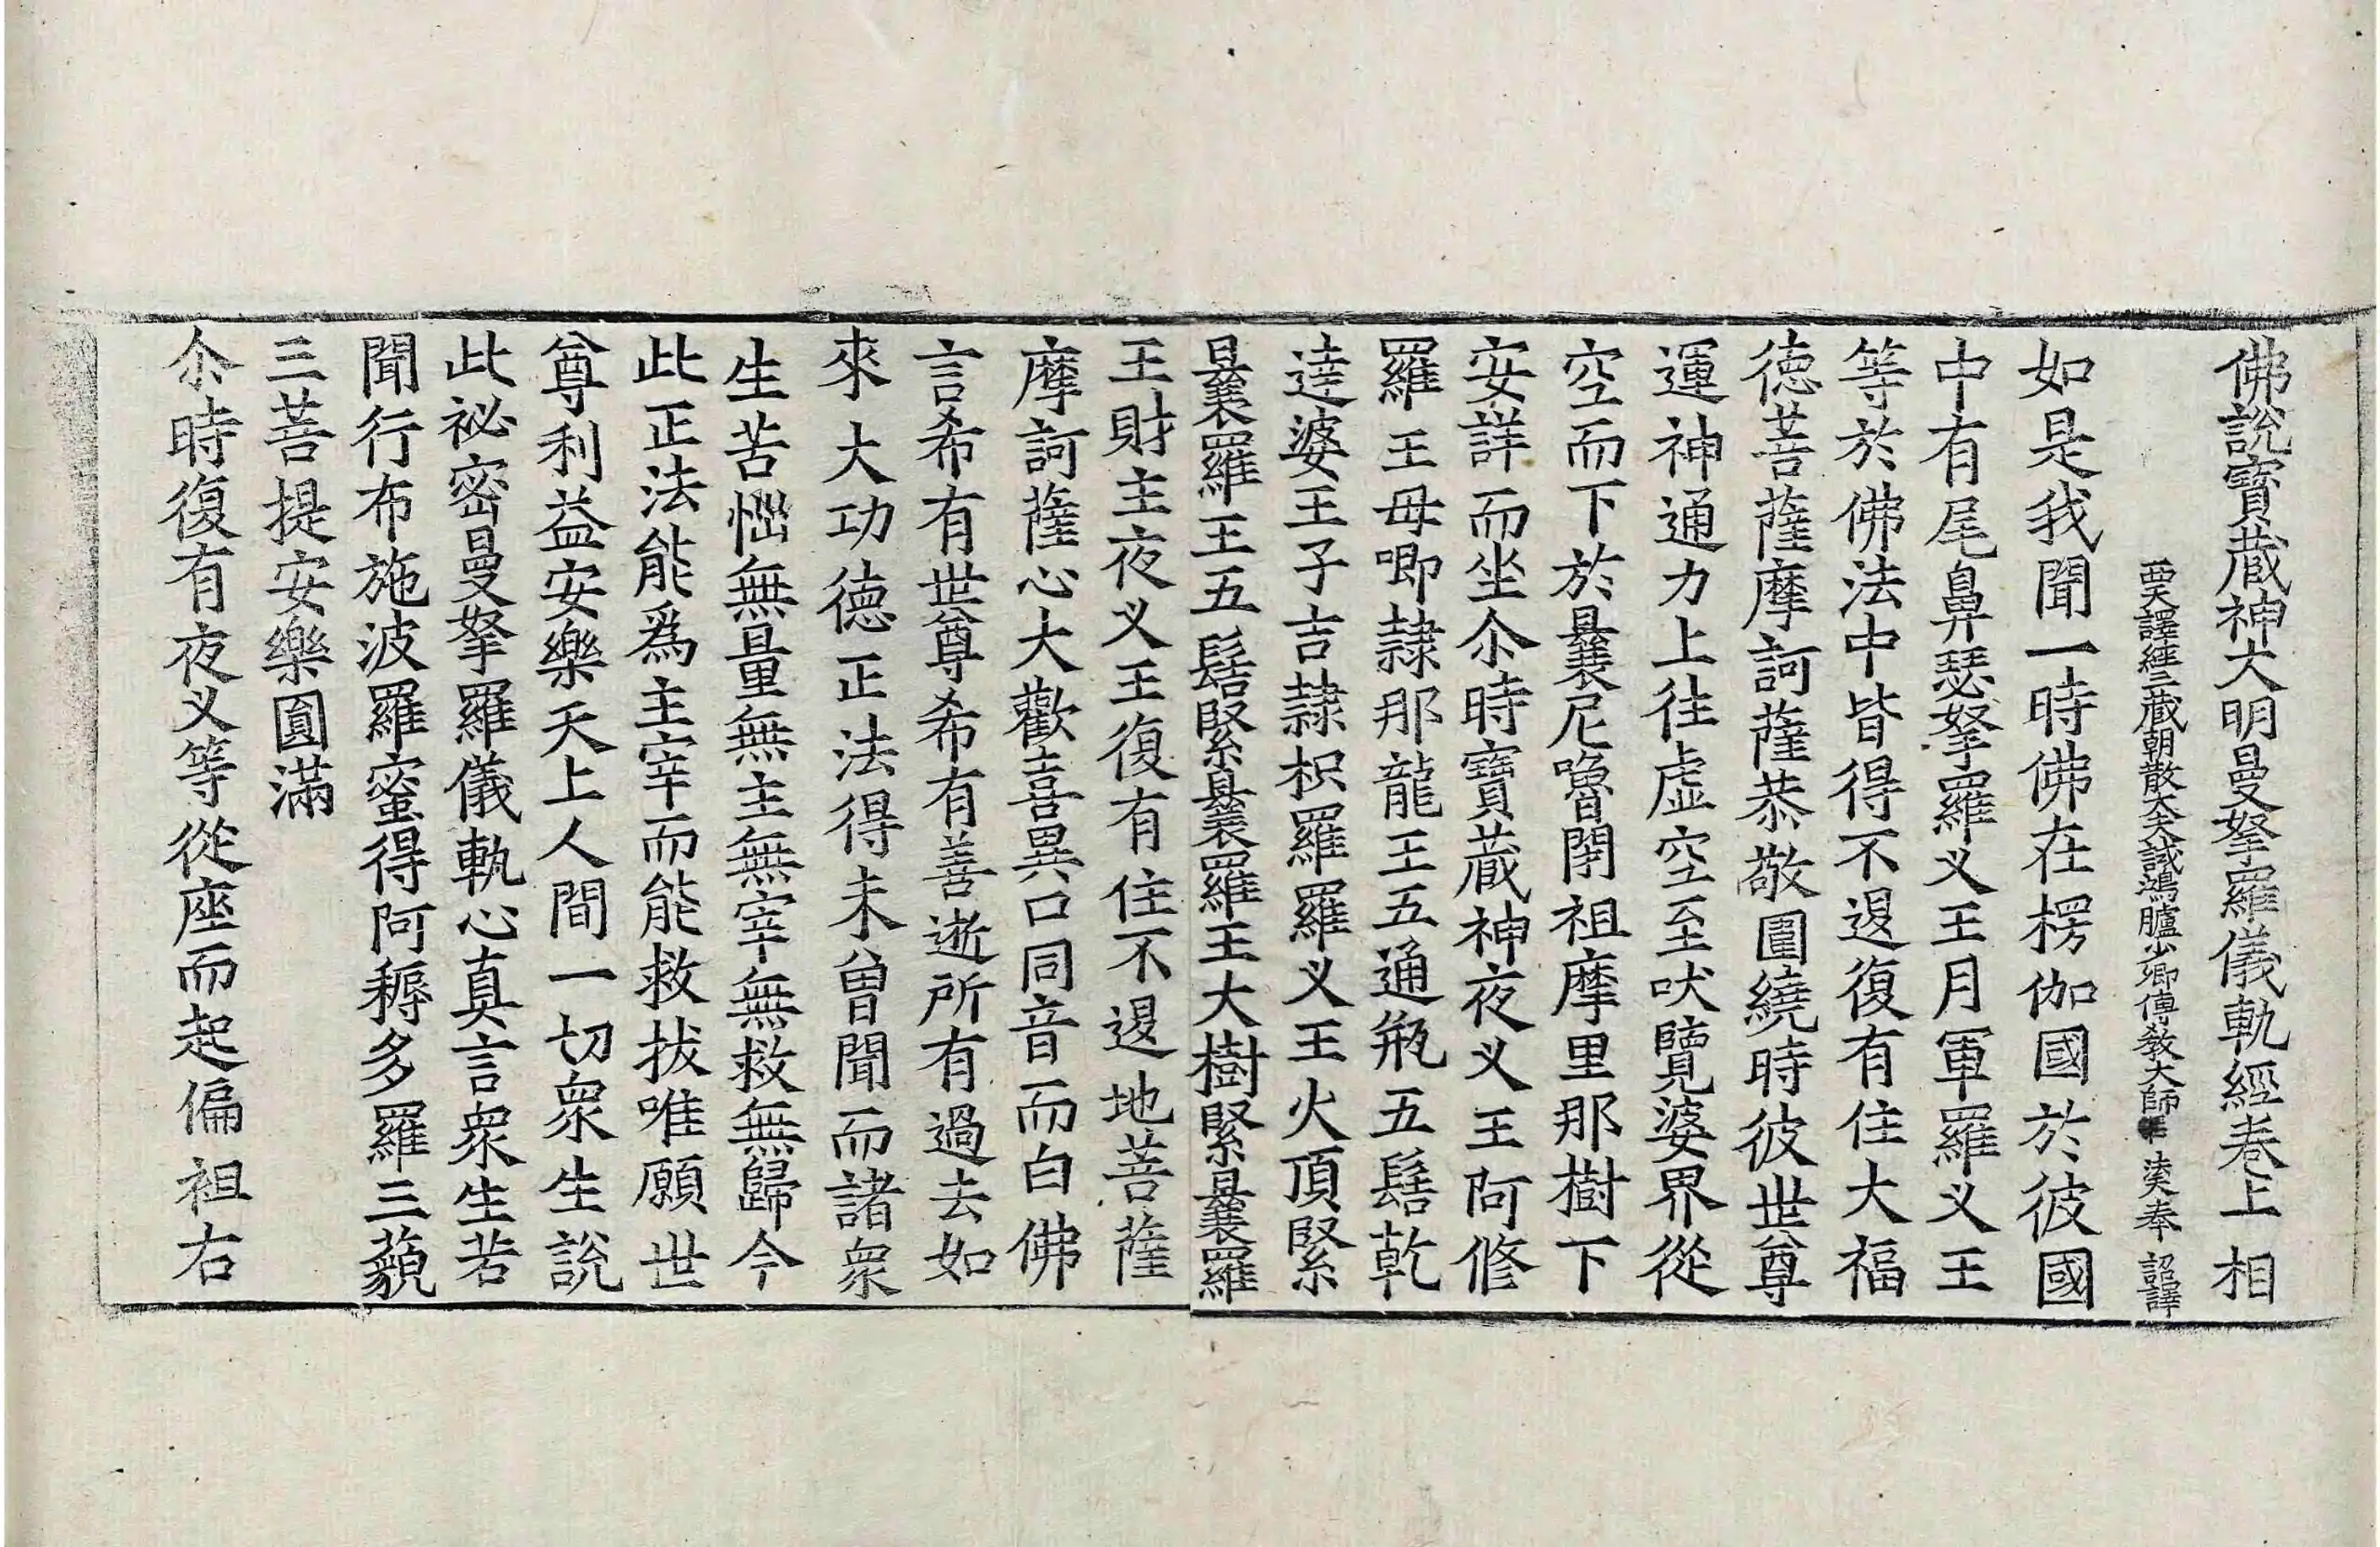 佛說寶藏神大明曼拏羅儀軌經卷上 相
西天譯經三藏朝散大夫試鴻臚少卿傳教大師 法天奉 詔譯
如是我聞一時佛在楞伽國於彼國
中有尾鼻瑟拏羅义王月軍羅义王
等於佛法中皆得不退復有住大福
德菩薩摩訶薩恭敬圍繞時彼世尊
運神通力上往虛空至吠覽婆界從
空而下於曩尼嚕閉祖摩里那樹下
安詳而坐尒時寶藏神夜义王阿修
羅王母唧隷那龍王五通瓶五髻乾
達婆王子吉隷枳羅羅义王火頂緊
曩羅王五髻緊曩羅王大樹緊曩羅
王財主夜义王復有住不退地菩薩
摩訶薩心大歡喜異口同音而白佛
言希有世尊希有善逝所有過去如
來大功德正法得未曾聞而諸衆
生苦惱無量無主無宰無救無歸今
此正法能爲主宰而能救拔唯願世
尊利益安樂天上人間一切衆生說
此祕密曼拏羅儀軌心真言衆生若
聞行布施波羅蜜得阿耨多羅三藐
三菩提安樂圓滿
尒時復有夜义等從座而起偏袒右